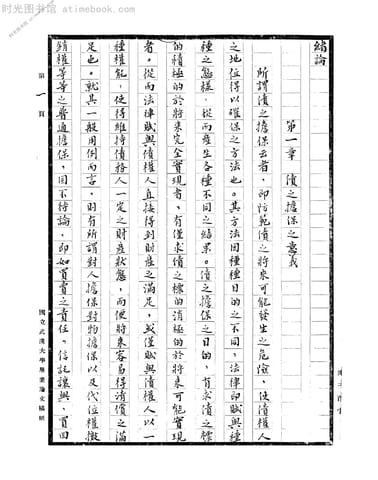 时光图书馆 - atimebook.com
緒論
第一章 債之擔保之意義
所謂債之擔保云者，即防範債之將來可能發生之危險，使債權人
之地位得以確保之方法也。其方法因種種目的之不同，法律即賦與種
種之態樣，從而產生各種不同之結果。債之擔保之目的，有求債之標
的積極的於將來完全實現者，有僅求債之標的消極的於將來可能實現
者。從而法律賦與債權人直接得到財產之滿足，或僅賦與債權人以一
種權能，使得維持債務人一定之財產狀態，而便將來容易得清償之滿
足也。就其一般用例而言，則有所謂對人擔保對物擔保以及代位權撤
銷權等等之普通擔保，固不待論，即如買賣之責任。信託讓與，買回
第一頁
國立武漢大學畢業論文稿紙